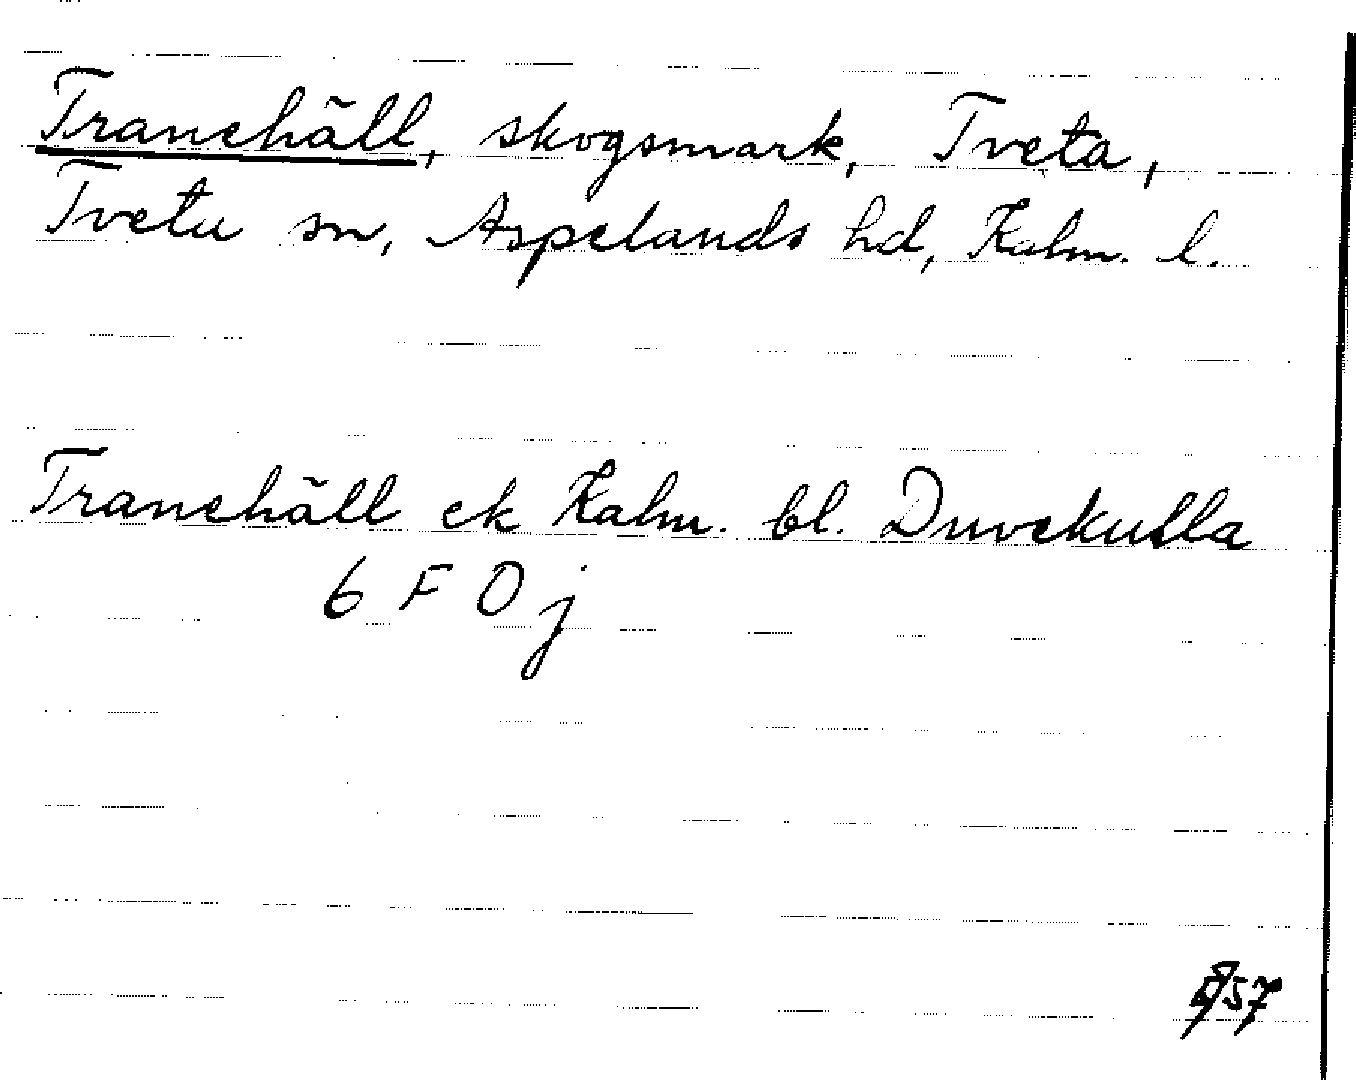 Tranehäll, skogsmark, Tveta,
Tveta sn, Aspelands hd, Kalm. l.
Tranehäll ek Kalm. bl. Duvekulla
6 F 0 j
57